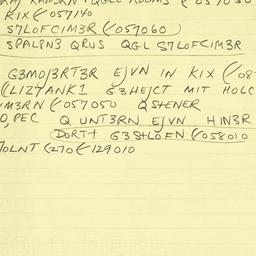 KIX (057140
S7LOFCIM3R (057060)
SPALRN3 QRUS QGL S7LOFCIM3R
G3MOJ3RT3R EJVN IN KIX (08
(LIZYANK1 G3HEJCT MIT HOLC
IM3RN (057050 QSTENER
O,PEC Q UNT3RN EJVN HIN3R
DORT+ G3StLOFN (058010
7OLNT (270 (129010